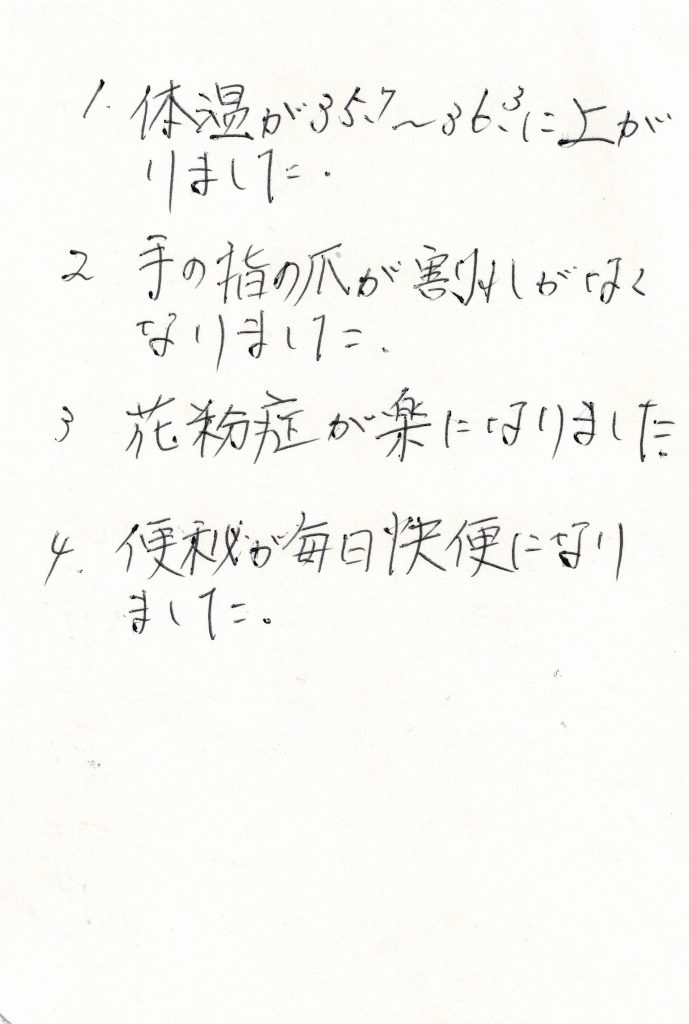 1. 体温が35.7〜36.3に上が
りました.
2 手の指の爪が割れがなく
なりました.
3 花粉症が楽になりました.
4. 便秘が毎日快便になり
ました。